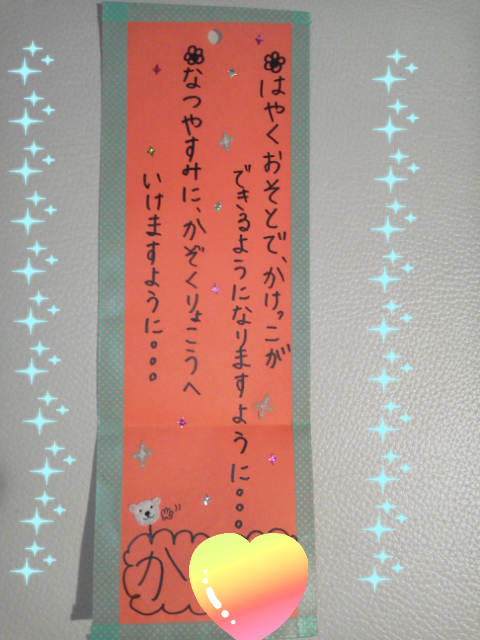 はやくおそとで、かけっこが
できるようになりますように。。。
なつやすみに、かぞくりょこうへ
いけますように。。。
か